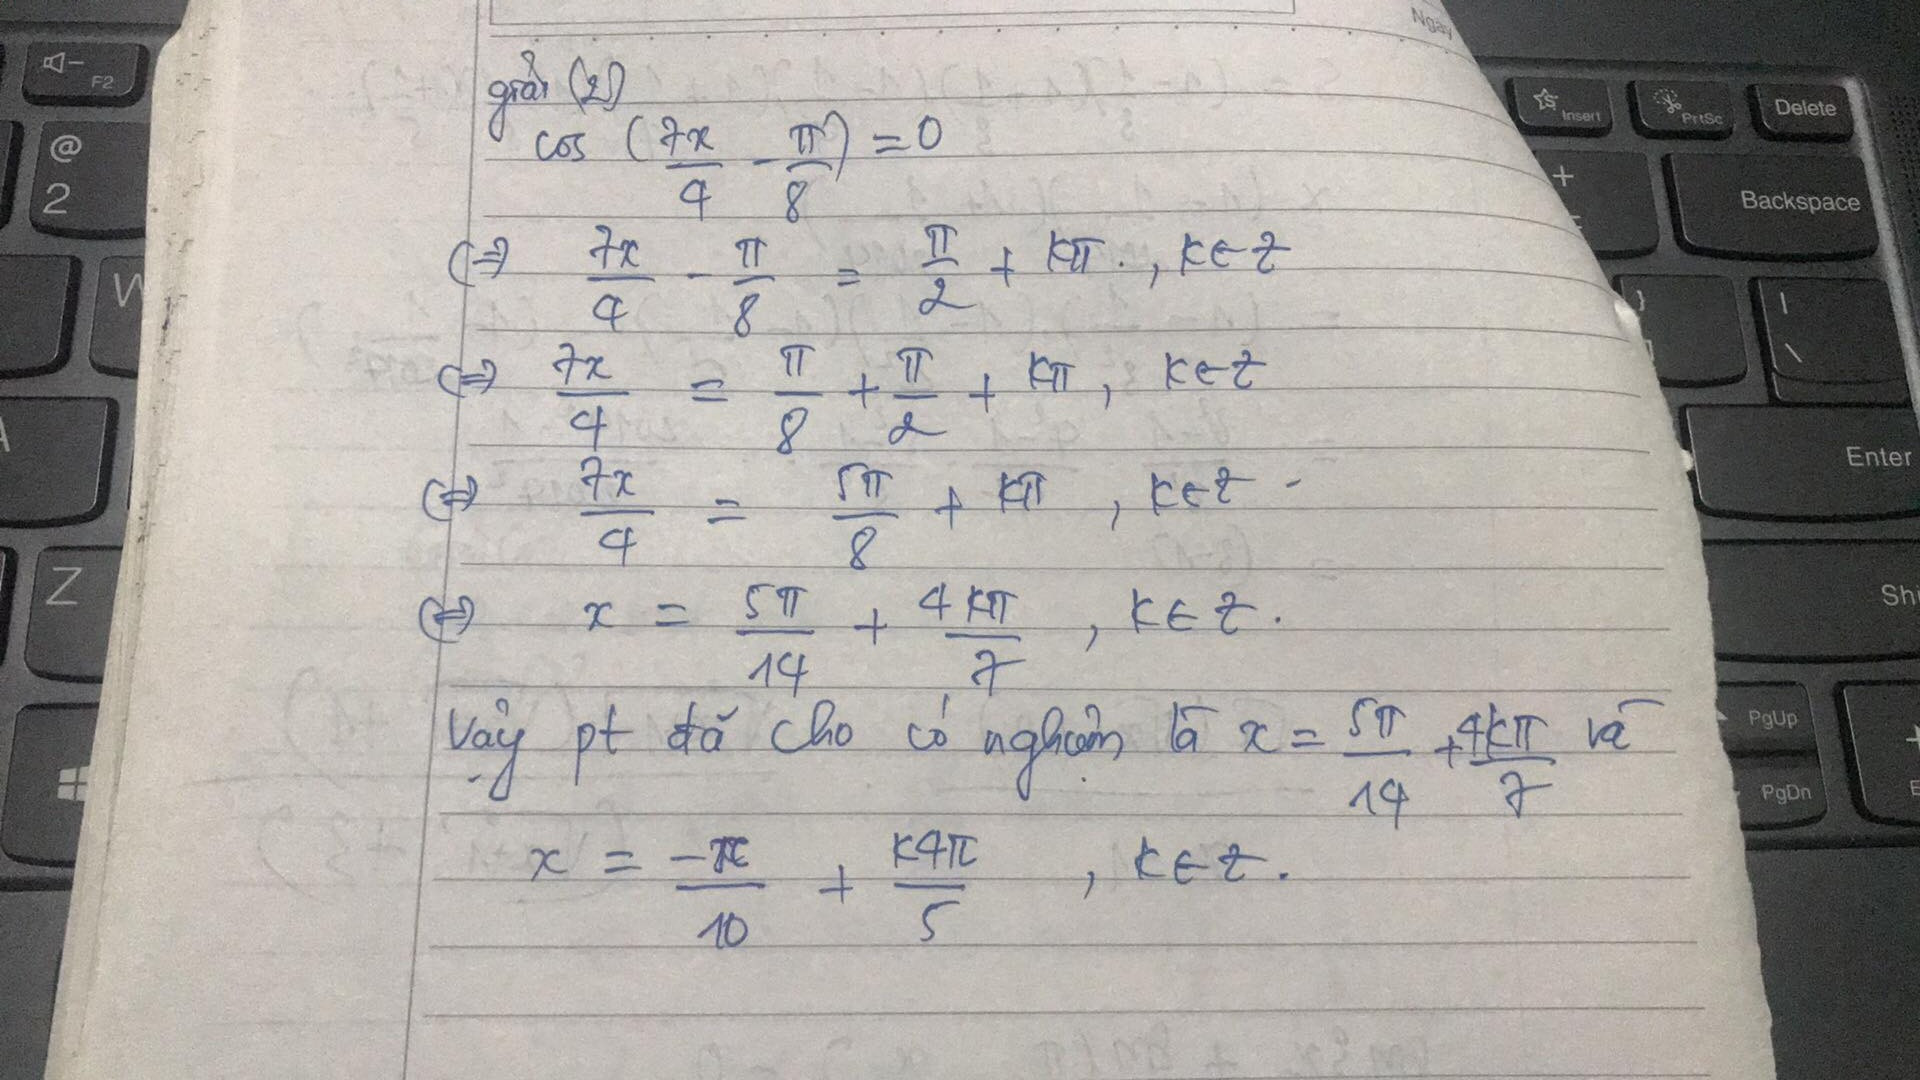 Ngày
giải (2)
cos (7x/4 - π/8) = 0
(=) 7x/4 - π/8 = π/2 + kπ. , k∈Z
(=) 7x/4 = π/8 + π/2 + kπ, k∈Z
(=) 7x/4 = 5π/8 + kπ , k∈Z
(=) x = 5π/14 + 4kπ/7 , k∈Z.
Vậy pt đã cho có nghiệm là x = 5π/14 + 4kπ/7 và
x = -π/10 + k4π/5 , k∈Z.
F2
@
2
W
A
Z
Insert
PrtSc
Delete
+
Backspace
}
|
\
Enter
Shi
PgUp
PgDn